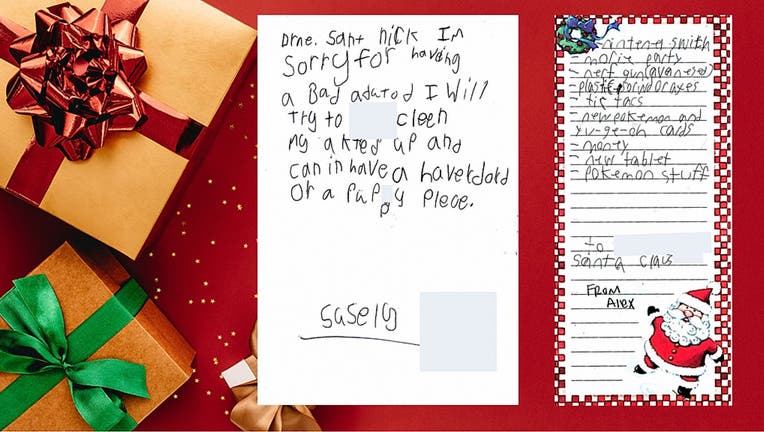 Drne. Sant nick Im
Sorry for having
a Bad adatod I Will
Try to cleen
my akted up and
can in have a haverdord
Or a Pappy Plece.
sasely
party
- nerf gun
- plastic or axes
- tic tacs
- new pokemon and
yu-ge-oh cards
- money
- new tablet
- Pokemon stuff
to
santa claus
From
Alex